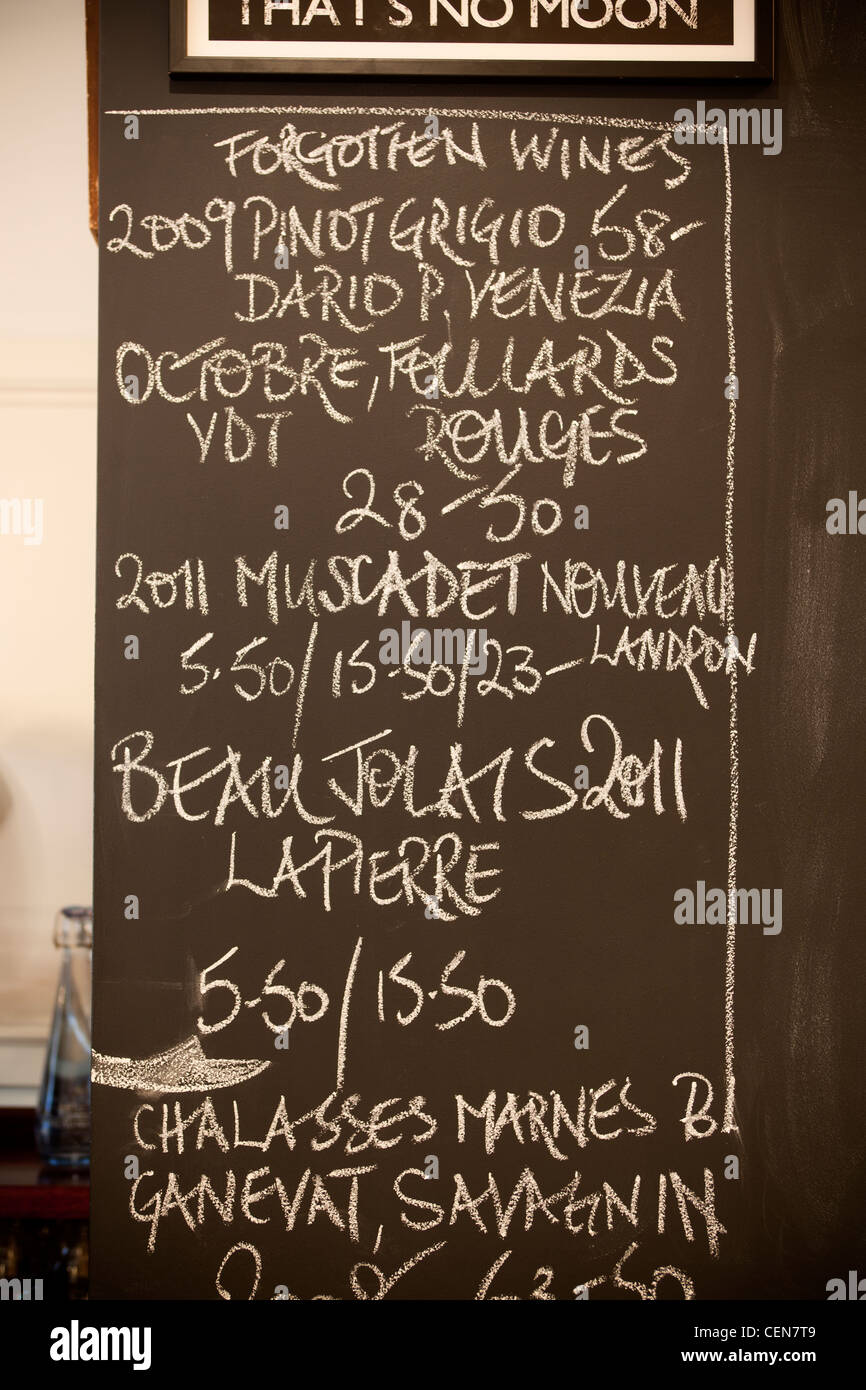 THAT'S NO MOON
FORGOTTEN WINES
2009 PINOT GRIGIO 58-
DARIO P, VENEZIA
OCTOBRE, FOLLIARDS
VDT ROUGES
28-50
2011 MUSCADET NOUVEAU
5.50/15.50/23- LANDRON
BEAUJOLAIS 2011
LAPIERRE
5.50/15.50
CHALASSES MARNES B.
GANEVAT, SAVAGNIN
63-50
alamy
Image ID: CEN7T9
www.alamy.com